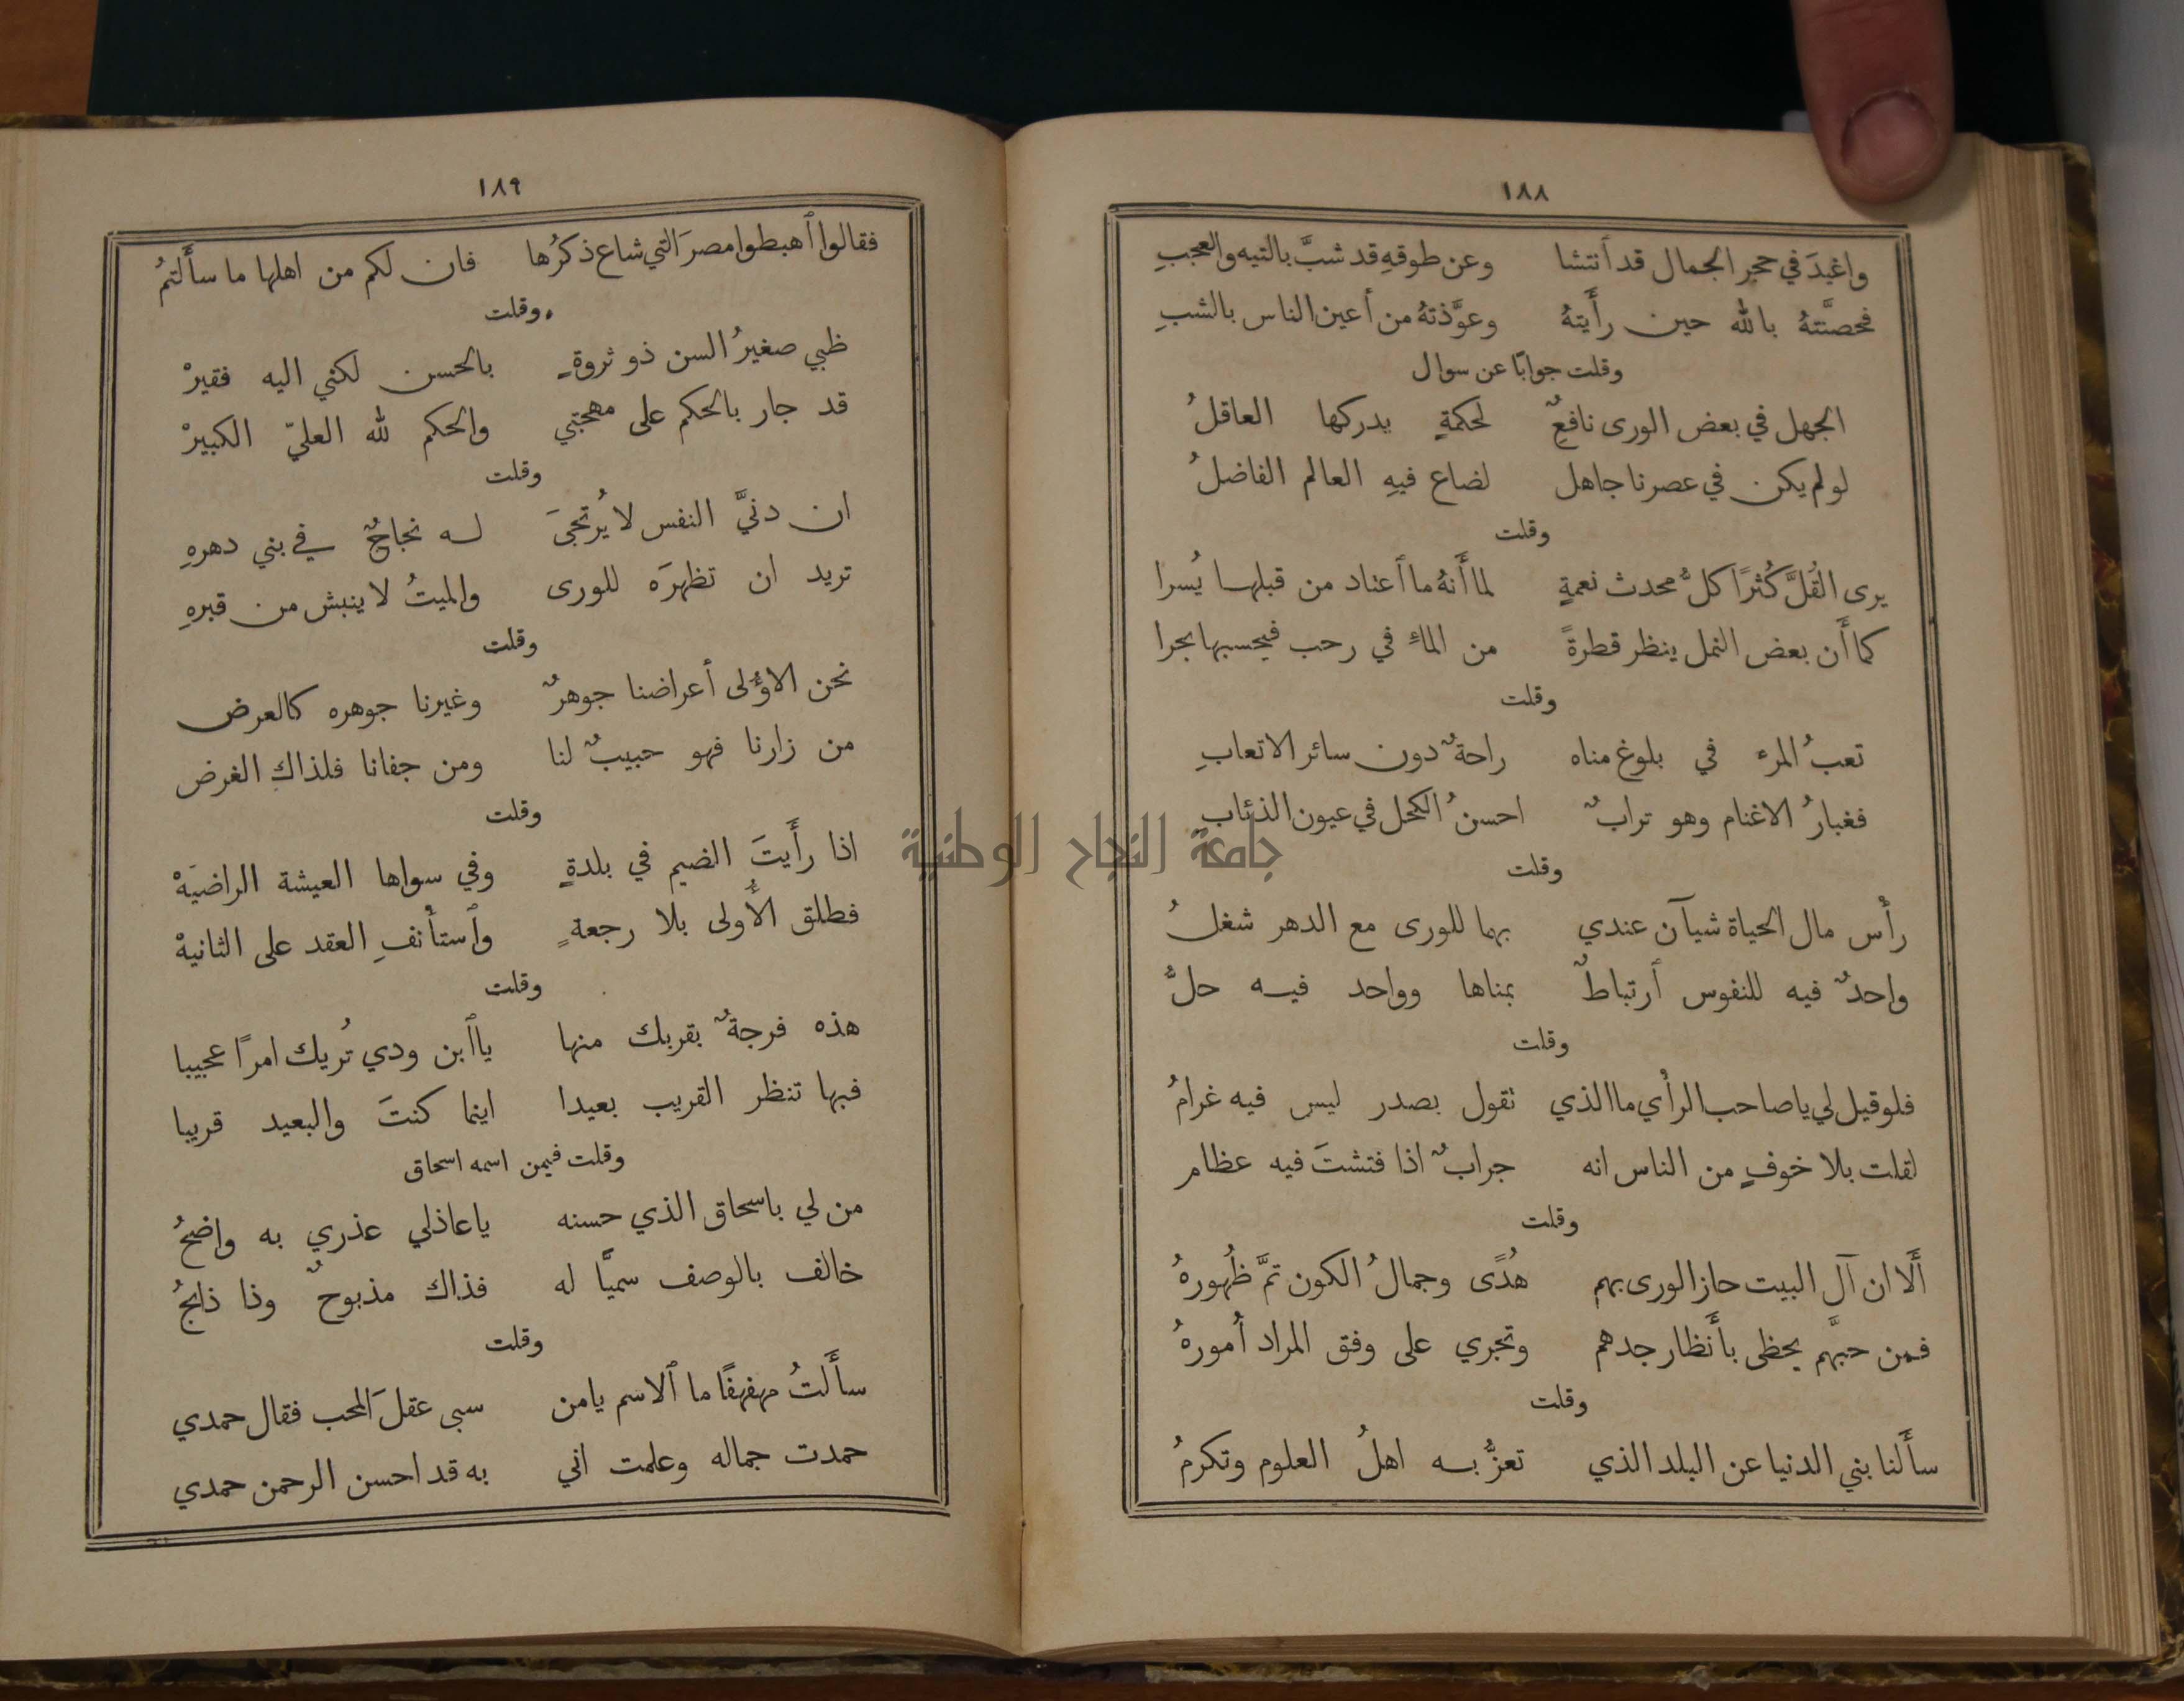 ١٨٨
واغيدَ في حجر الجمال قد أنتشا وعن طوقهِ قد شبَّ بالتيه والعجبِ
فحصنَّتهُ بالله حين رأَيتهُ وعوَّذتهُ من أعين الناس بالشبِ
وقلت جوابًا عن سوال
الجهل في بعض الورى نافعٌ لحكمةٍ يدركها العاقلُ
لو لم يكن في عصرنا جاهل لضاع فيهِ العالم الفاضلُ
وقلت
يرى القُلَّ كُثرًا كلُّ محدث نعمةٍ لما أَنهُ ما أعناد من قبلها يُسرا
كما أَن بعض النمل ينظر قطرةً من الماءِ في رحب فيحسبها بحرا
وقلت
تعبُ المرءِ في بلوغ مناه راحةٌ دون سائر الاتعابِ
فغبارُ الاغنام وهو ترابٌ احسنُ الكحل في عيون الذئاب
وقلت
رأس مال الحياة شيآن عندي بهما للورى مع الدهر شغلُ
واحدٌ فيه للنفوس أرتباطٌ بمناها وواحد فيه حلُّ
وقلت
فلو قيل لي يا صاحب الرأي ما الذي نقول بصدر ليس فيه غرامُ
لقلت بلا خوفٍ من الناس انه جرابٌ اذا فتشتَ فيه عظام
وقلت
أَلا ان آل البيت حاز الورى بهم هُدًى وجمالُ الكون تمَّ ظُهورهُ
فمن حبهَّم يحظى بأَنظار جدهم وتجري على وفق المراد أُمورهُ
وقلت
سأَلنا بني الدنيا عن البلد الذي تعزُّ به اهلُ العلوم وتكرمُ
١٨٩
فقالوا أهبطوا مصرَ التي شاع ذكرُها فان لكم من اهلها ما سأَلتمُ
وقلت
ظبي صغيرُ السن ذو ثروةٍ بالحسن لكني اليه فقيرْ
قد جار بالحكم على مهجتي والحكم لله العليّ الكبيرْ
وقلت
ان دنيَّ النفس لا يُرتجىَ له نجاحٌ في بني دهرهِ
تريد ان تظهرَه للورى والميتُ لا ينبش من قبرهِ
وقلت
نحن الاؤُلى أعراضنا جوهرٌ وغيرنا جوهره كالعرض
من زارنا فهو حبيبٌ لنا ومن جفانا فلذاك الغرض
وقلت
اذا رأَيتَ الضيم في بلدةٍ وفي سواها العيشة الراضيَهْ
فطلق الأُولى بلا رجعةٍ وأستأنفِ العقد على الثانيهْ
وقلت
هذه فرجةٌ بقربك منها ياأبن ودي تُريك امرًا عجيبا
فبها تنظر القريب بعيدا اينما كنتَ والبعيد قريبا
وقلت فيمن اسمه اسحاق
من لي باسحاق الذي حسنه ياعاذلي عذري به واضحُ
خالف بالوصف سميًّا له فذاك مذبوحٌ وذا ذابحُ
وقلت
سأَلتُ مهفهفًا ما ألاسم يامن سبى عقلَ المحب فقال حمدي
حمدت جماله وعلمت اني به قد احسن الرحمن حمدي
جامعة النجاح الوطنية